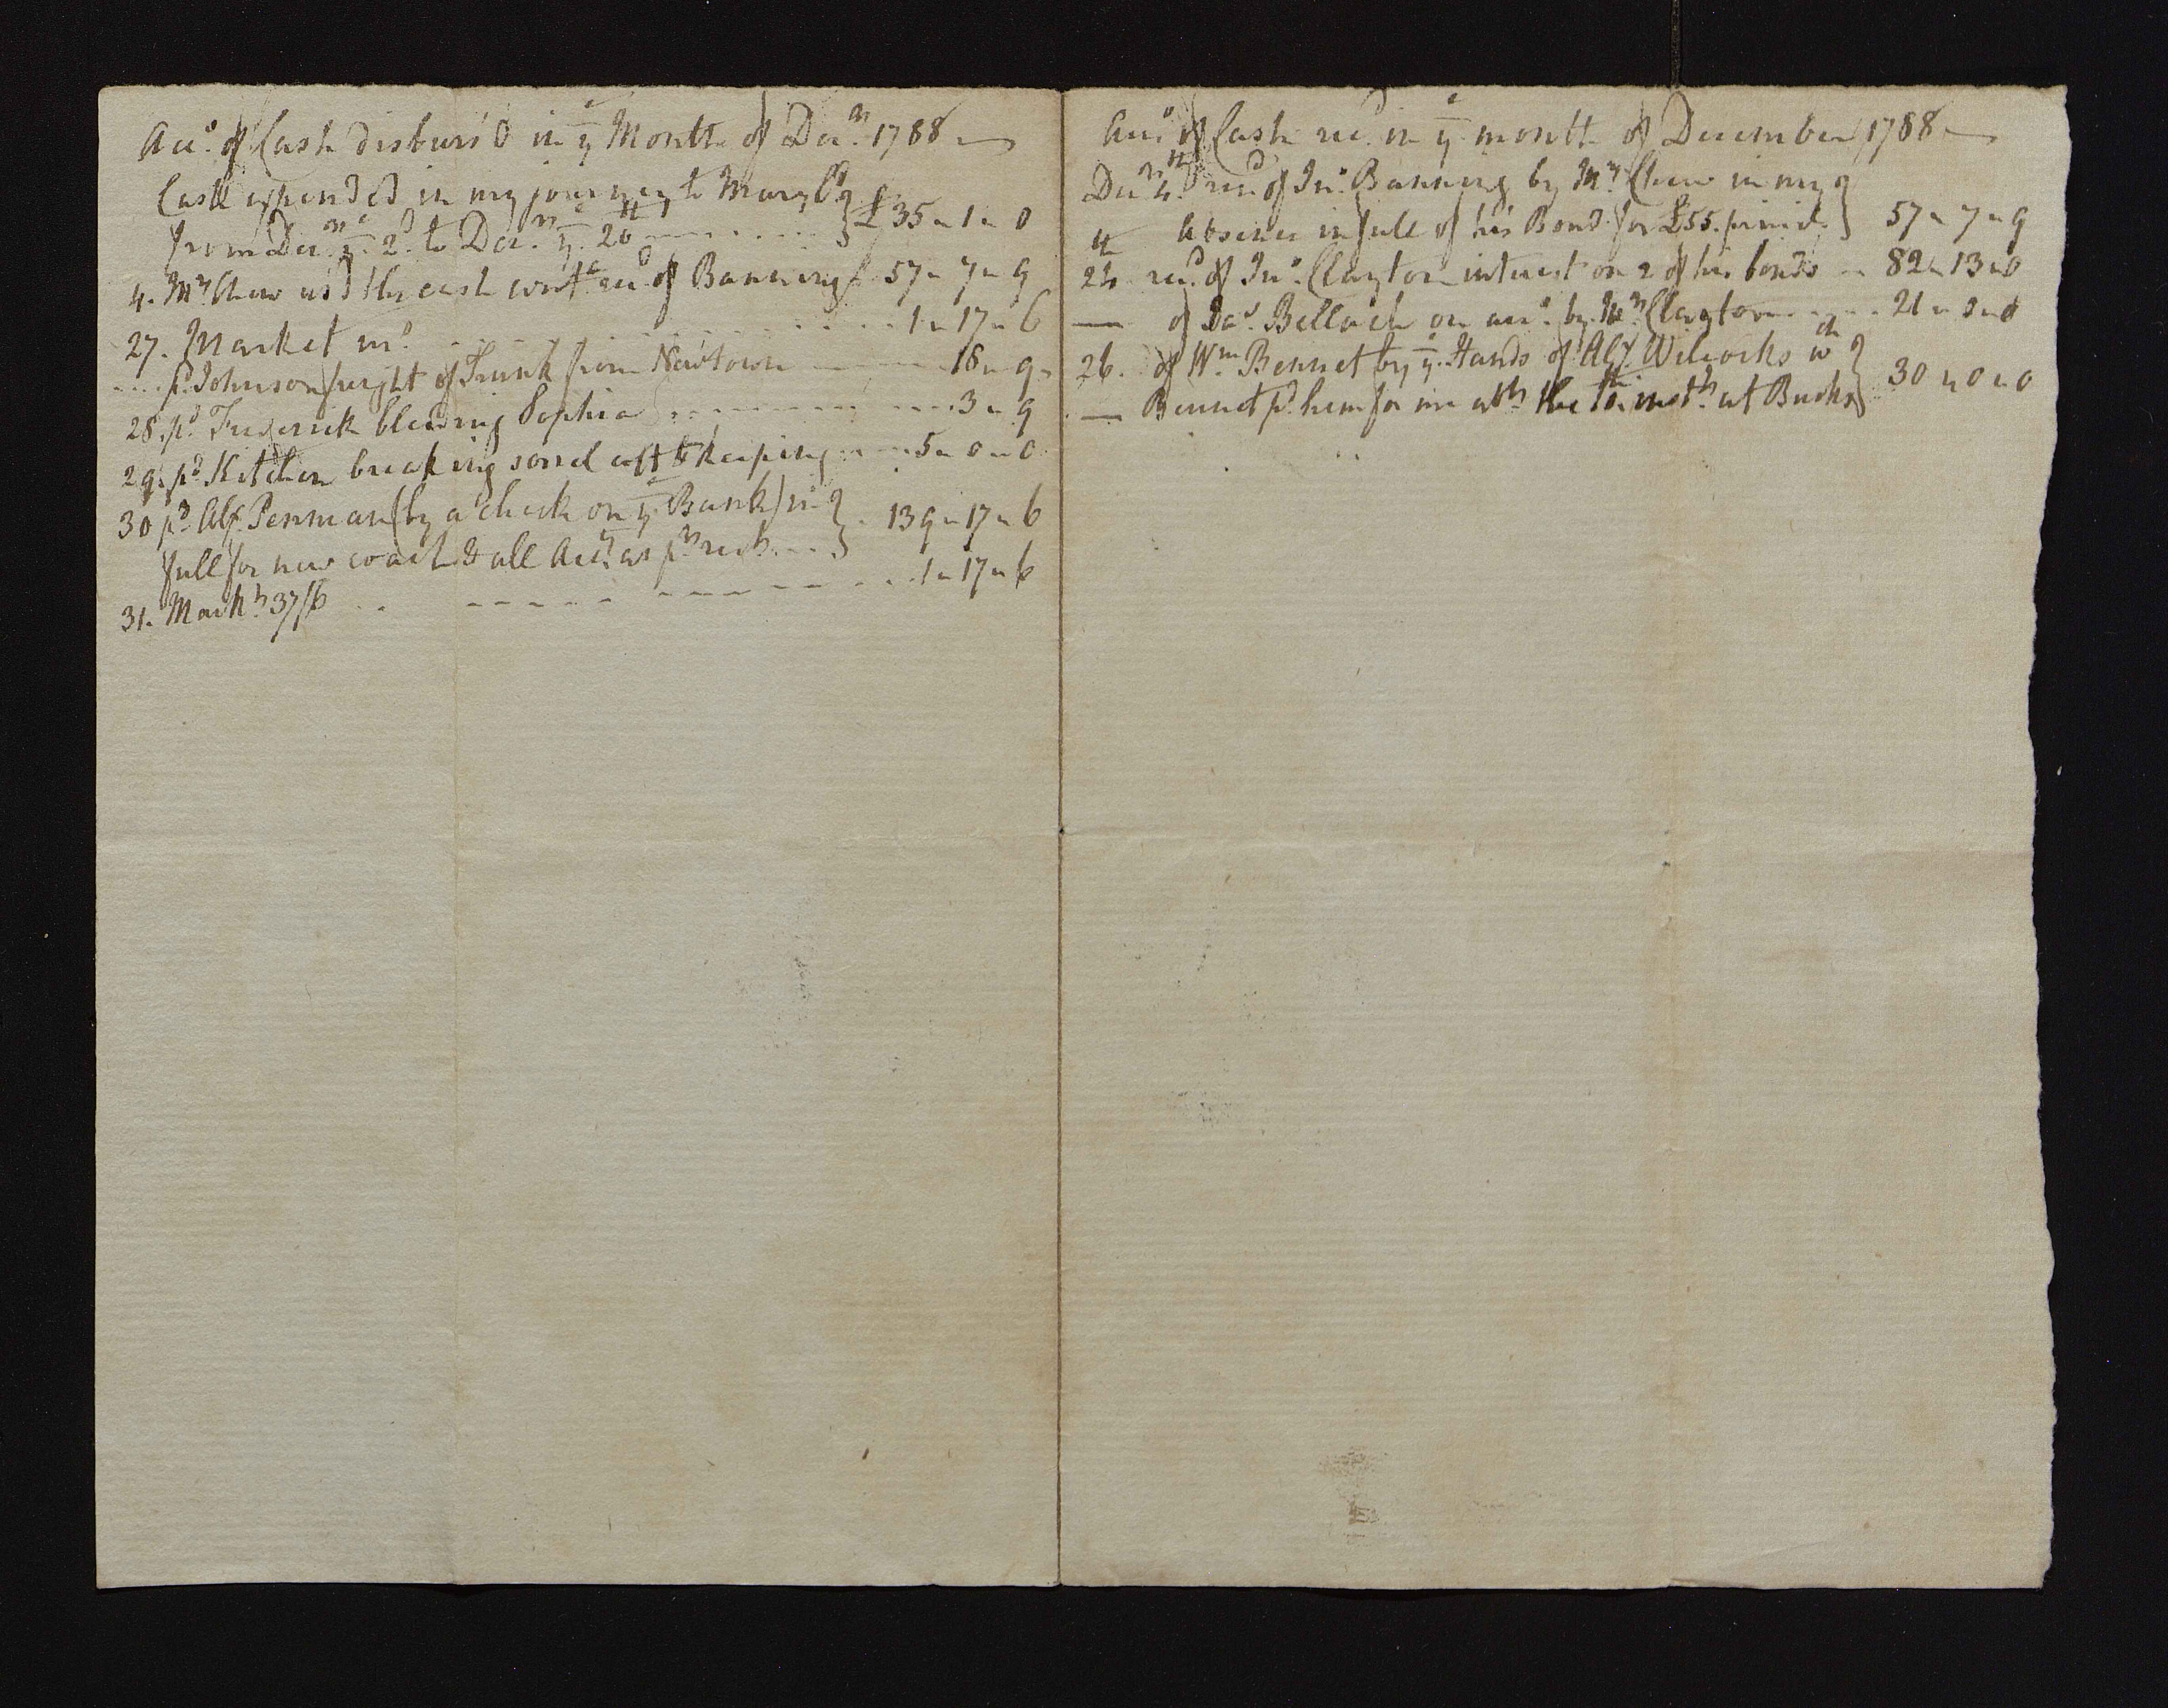 Acc.o of Cash disburs'd in ye Month of Decr. 1788
Cash expended in my journey to Maryld
from Decr. ye 2d. to Decr. ye 26th £35 " 1 " 0
4. Mrs Chew us'd the cash recd of Banning 57 " 7 " 9
27. Market mo 1 " 17 " 6
pd. Johnson freight of Trunk from Newtown 18 " 9
28. pd Frederick bleeding Sophia 3 " 9
29. pd Kitchen breaking sorrel colt & keeping 5 " 0 " 0
30 pd Alx. Penman (by a check on ye Bank) in
full for new coach & all Accts as pr rect. 139 " 17 " 6
31. Markt 37/6 1 " 17 " 6
Acco of Cash recd. in ye month of December 1788
Decr 4th recd of Jno. Banning by Mrs Chew in my
absence in full of his Bond for £55. princl. 57 " 7 " 9
24 recd. of Jno. Clayton interest on 2 of his bonds 82 " 13 " 0
— of Dad. Bellach on acco. by Mr Clayton 21 " 0
26. of Wm. Bennet by ye Hands of Alx. Wilcocks wch
— Bennet pd. him for me at Bucks 30 " 0 " 0